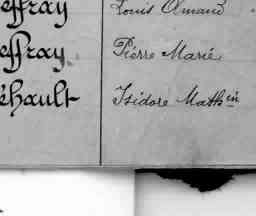 effray Louis Amand
effray Pierre Marie
éhault Isidore Mathin